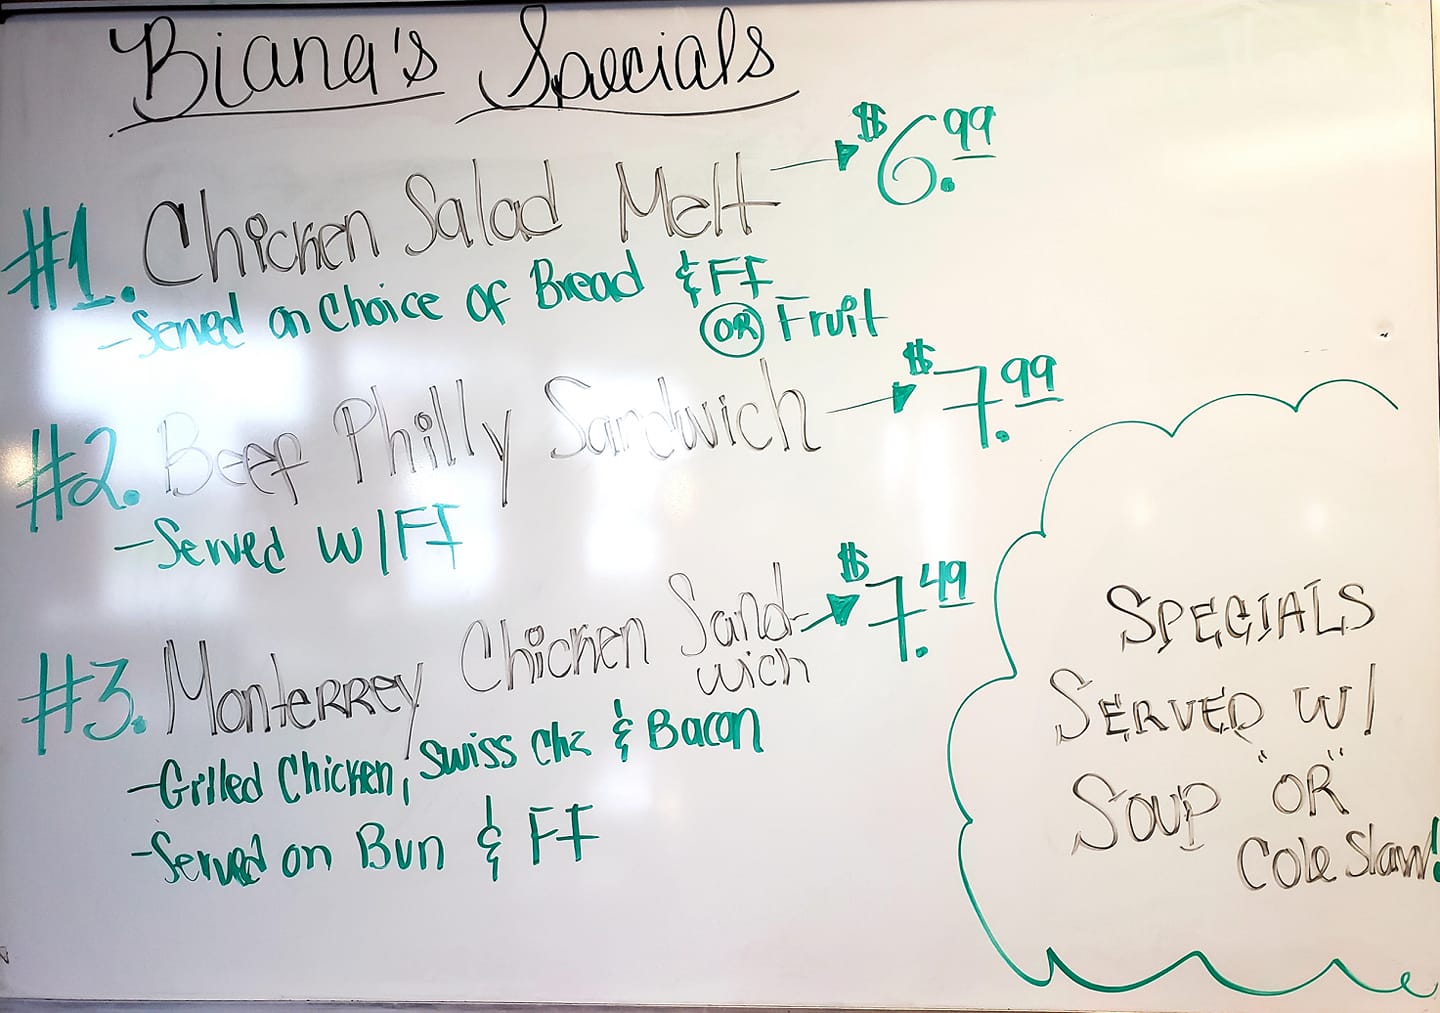 Biana's Specials
#1. Chicken Salad Melt → $6.99
- Served on Choice of Bread & FF
OR Fruit
#2. Beef Philly Sandwich → $7.99
- Served w/ FF
#3. Monterrey Chicken Sand-
wich → $7.49
- Grilled Chicken, Swiss Chz & Bacon
- Served on Bun & FF
SPECIALS
SERVED W/
SOUP "OR"
Cole Slaw!